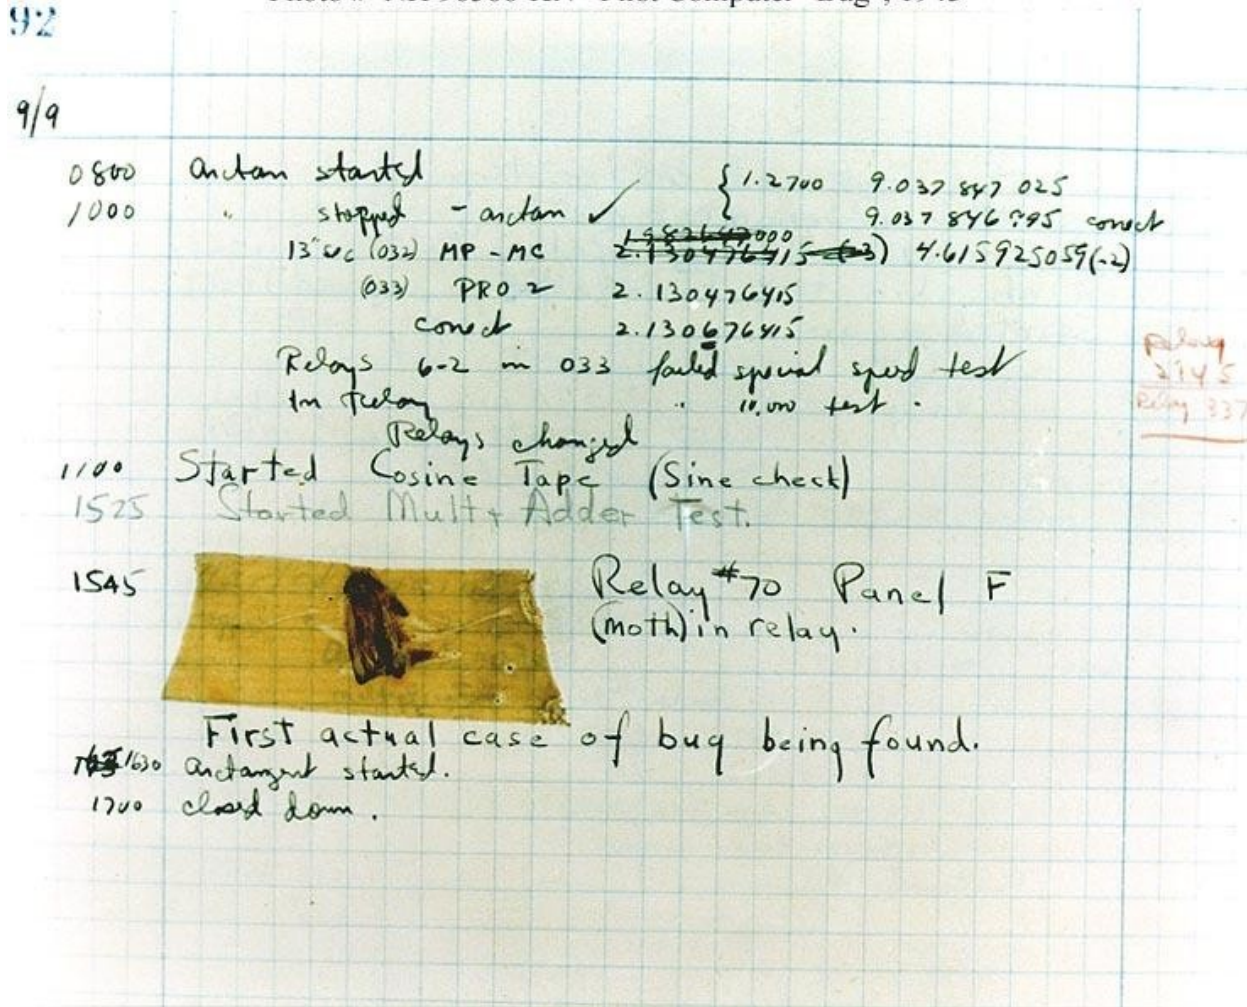 92
9/9
0800 arctan started { 1.2700 9.037 847 025
1000 " stopped - arctan ✓ 9.037 846 995 correct
13" uc (032) MP - MC 2.130476415 (-3) 4.615925059(-2)
(033) PRO 2 2.130476415
correct 2.130676415
Relays 6-2 in 033 failed special speed test
In relay " 10,000 test .
Relays changed
1100 Started Cosine Tape (Sine check)
1525 Started Mult + Adder Test.
1545 Relay #70 Panel F
(moth) in relay.
First actual case of bug being found.
1630 arctangent started.
1700 closed down .
Relay
Relay 337